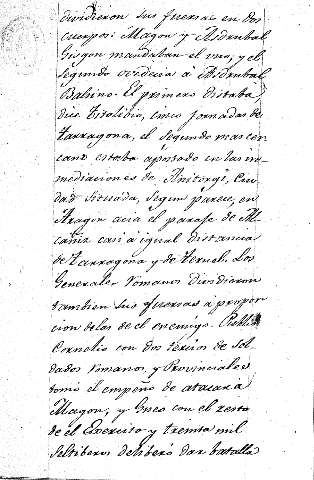 dividieron sus fuersas en dos
cuerpos: Magon y Asdrubal
Gisgon mandaban el uno, y el
segundo ovedecia a Asdrubal
Balsino. El primero distaba
dice Titolibio, cinco jornadas de
Tarragona, el segundo mas cer
cano estaba apostado en las in
mediaciones de Anitorgi, Ciu
dad situada, segun parece, en
Aragon acia el parage de Al
cañiz casi a igual distancia
de Tarragona y de Teruel. Los
Generales romanos dividieron
tambien sus fuersas a propor
cion de las de el enemigo. Publio
Cornelio con dos tercios de sol
dados romanos y Provinciales
tomó el empeño de atacar a
Magon; y Gneo con el resto
de el Exercito y treinta mil
Seltiberos deliberó dar batalla